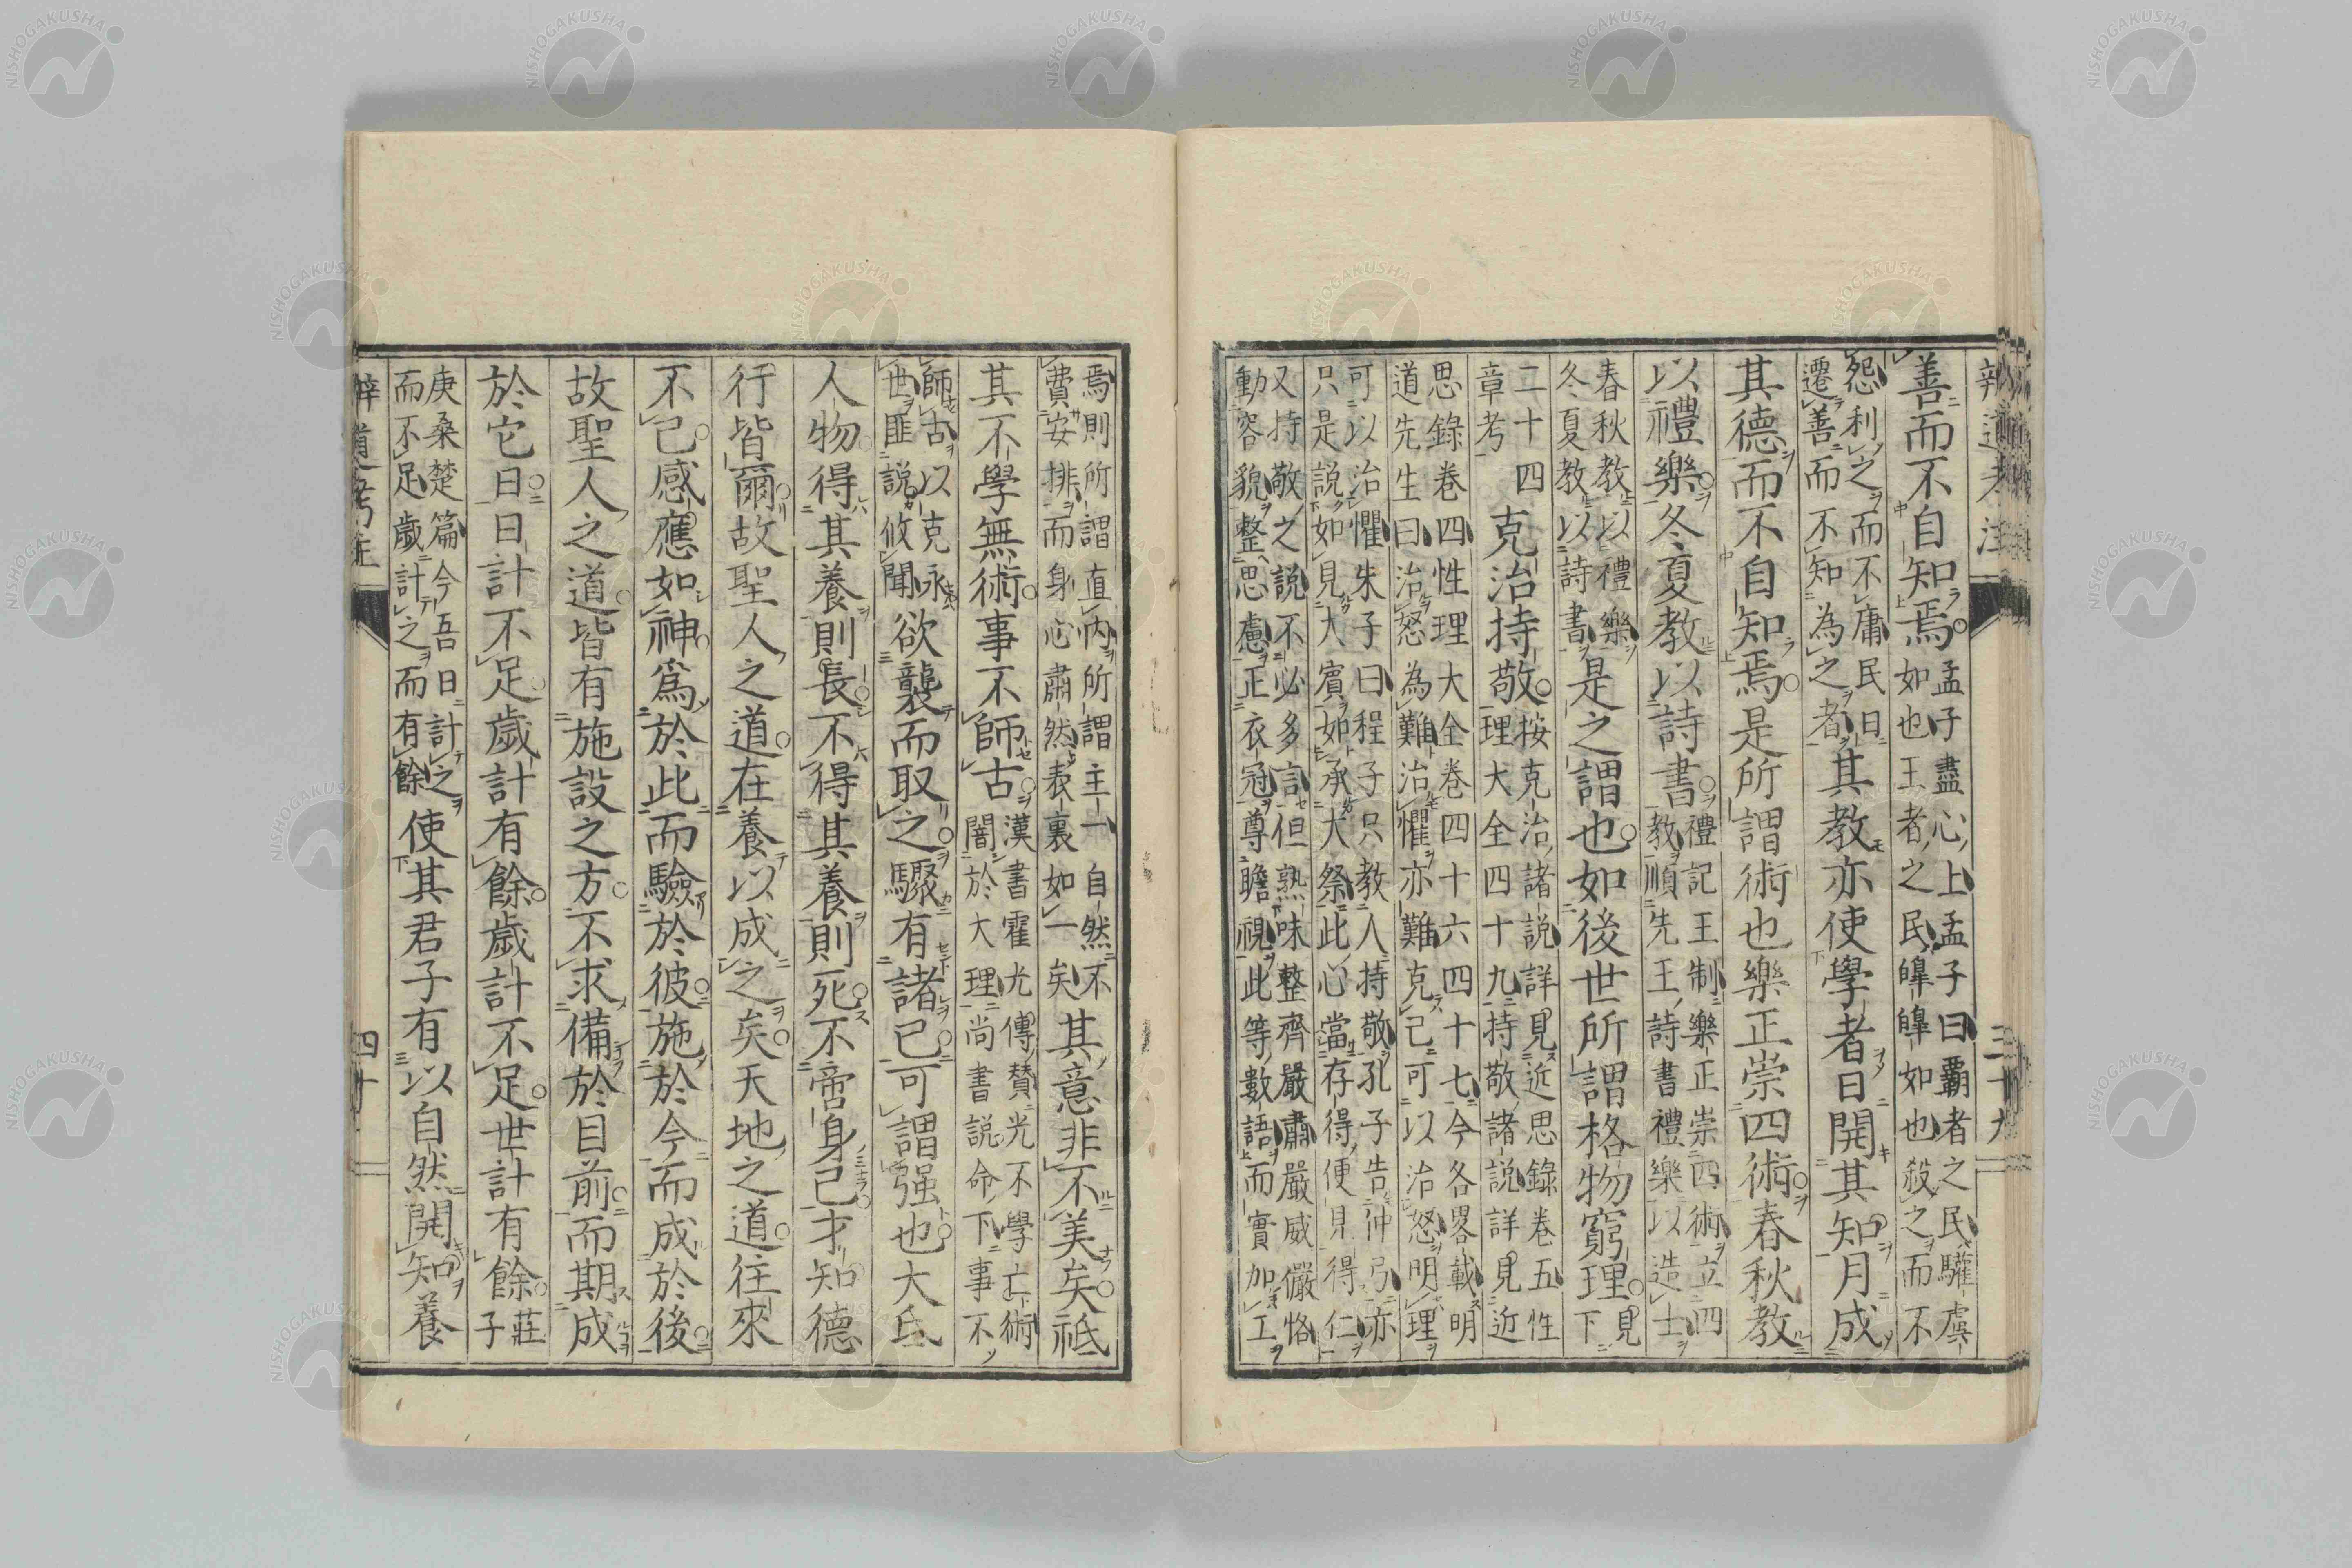 辨道考注 三十九
善而不自知焉孟子盡心上孟子曰覇者之民驩虞
如也王者之民皡皡如也殺之而不
怨利之而不庸民日
遷善而不知為之者其教亦使學者日開其知月成
其德而不自知焉是所謂術也樂正崇四術春秋教
以禮樂冬夏教以詩書禮記王制樂正崇四術立四
教順先王詩書禮樂以造士
春秋教以禮樂
冬夏教以詩書是之謂也如後世所謂格物窮理見
下
二十四
章考克治持敬按克治諸說詳見近思錄卷五性
理大全四十九持敬諸說詳見近
思錄卷四性理大全卷四十六四十七今各畧載明
道先生曰治怒為難治懼亦難克己可以治怒明理
可以治懼朱子曰程子只教人持敬孔子告仲弓亦
只是說如見大賓如承大祭此心當存得便見得仁
又持敬之說不必多言但熟味整齊嚴肅嚴威儼恪
動容貌整思慮正衣冠尊瞻視此等數語而實加工
焉則所謂直內所謂主一自然不
費安排而身心肅然表裏如一矣其意非不美矣祗
其不學無術事不師古漢書霍光傳贊光不學亡術
闇於大理尚書說命下事不
師古以克永
世匪說攸聞欲襲而取之驟有諸己可謂强也大氐
人物得其養則長不得其養則死不啻身己才知德
行皆爾故聖人之道在養以成之矣天地之道往來
不已感應如神爲於此而驗於彼施於今而成於後
故聖人之道皆有施設之方不求備於目前而期成
於它日日計不足歲計有餘歲計不足世計有餘莊
子
庚桑楚篇今吾日計之
而不足歲計之而有餘使其君子有以自然開知養
辨道考注 四十